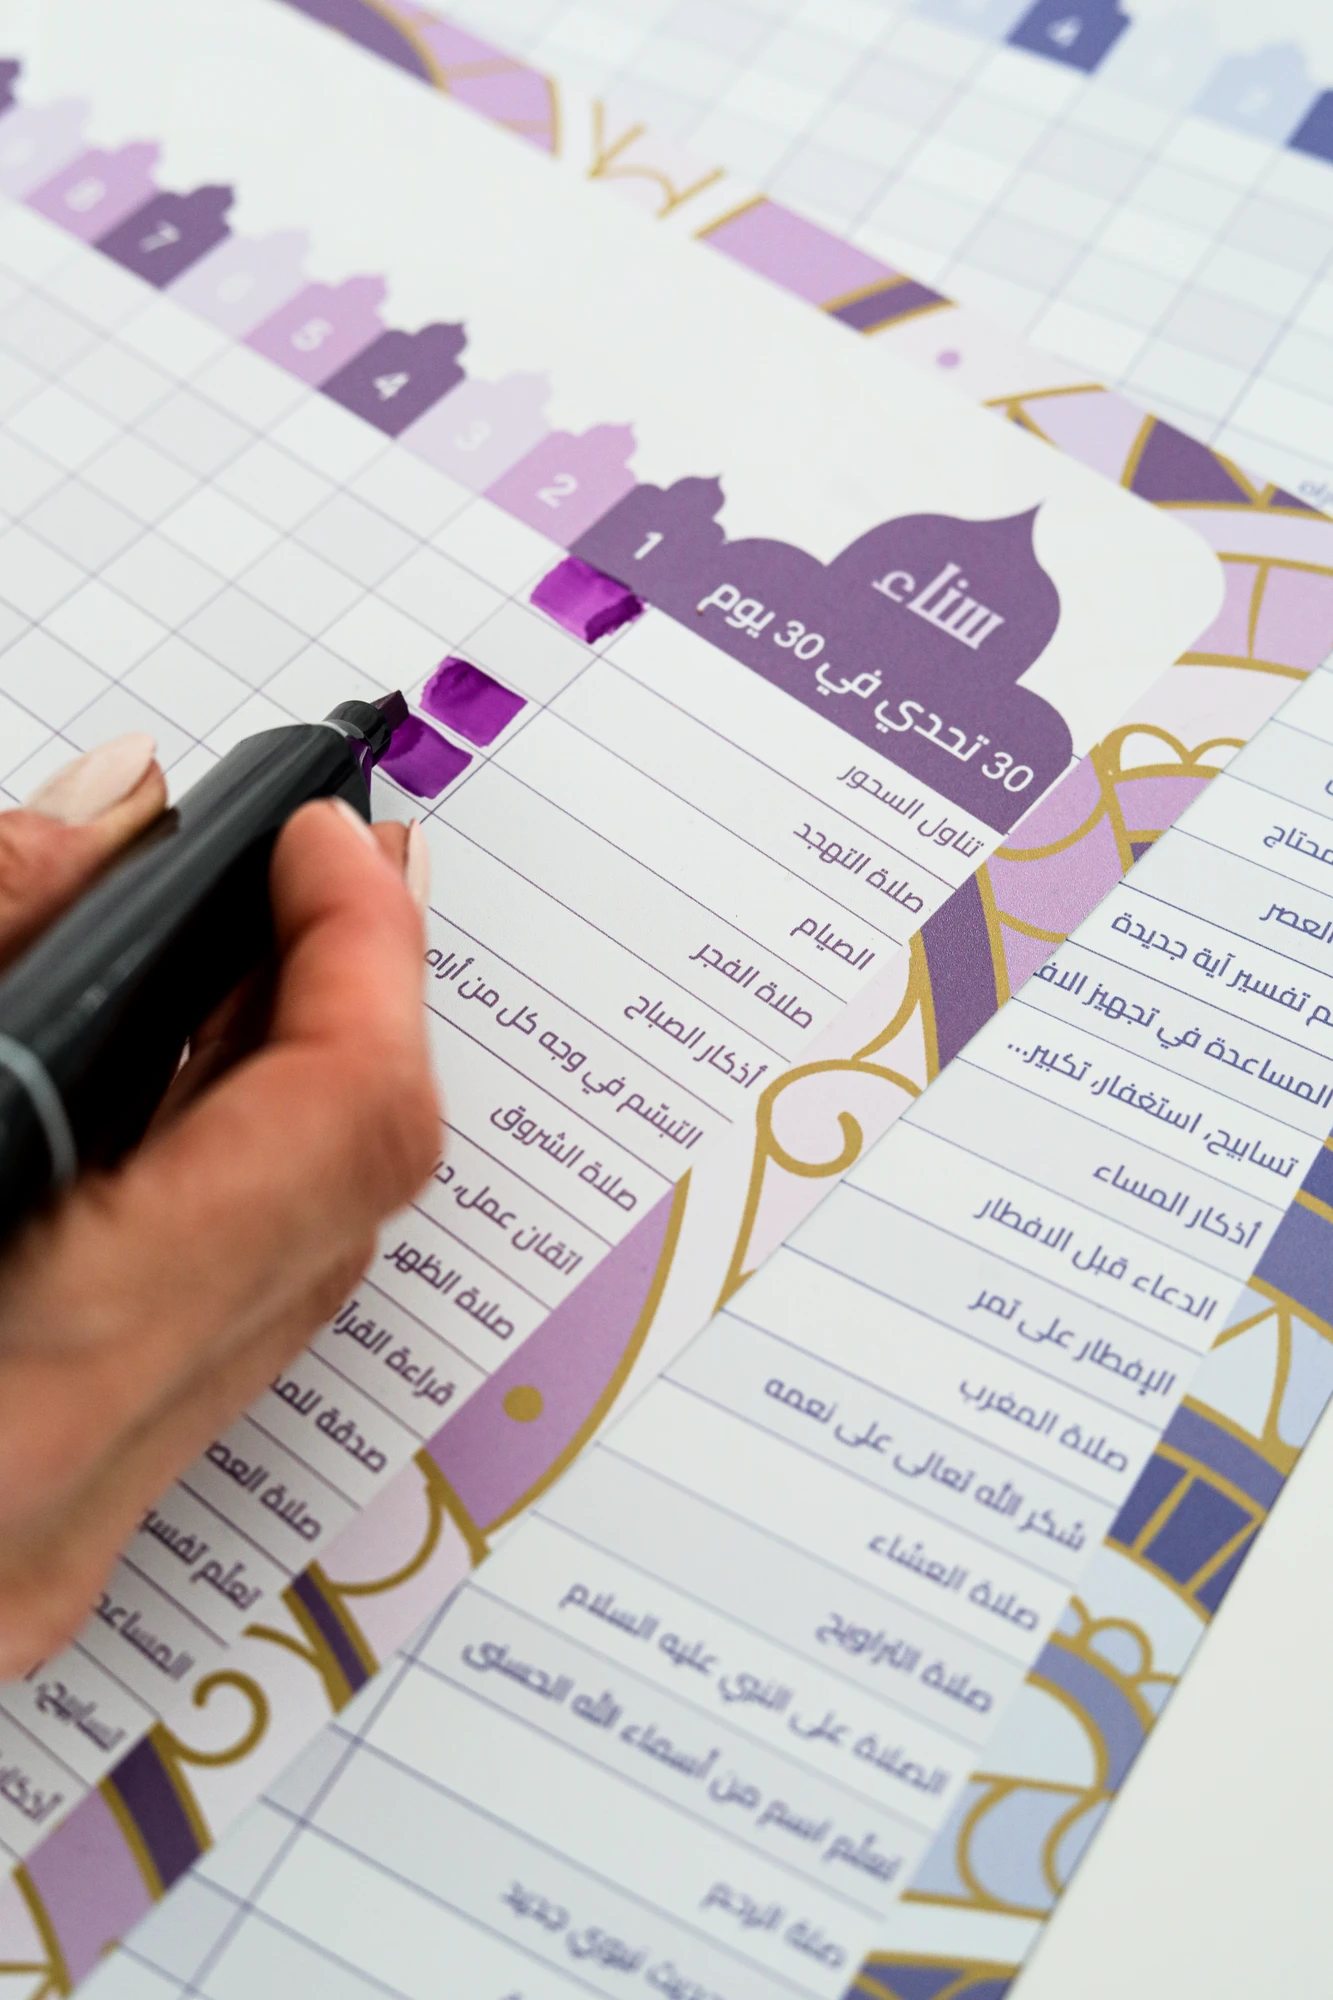 سناء
30 تحدي في 30 يوم
1
2
3
4
5
6
7
8
تناول السحور
صلاة التهجد
الصيام
صلاة الفجر
أذكار الصباح
التبسّم في وجه كل من أراه
صلاة الشروق
اتقان عمل،
صلاة الظهر
قراءة
صدقة
صلاة
تعلّم
محتاج
العصر
تفسير آية جديدة
المساعدة في تجهيز
تسابيح، استغفار، تكبير...
أذكار المساء
الدعاء قبل الافطار
الإفطار على تمر
صلاة المغرب
شكر الله تعالى على نعمه
صلاة العشاء
صلاة التراويح
الصلاة على النبي عليه السلام
تعلّم اسم من أسماء الله الحسنى
صلة الرحم
نبوي جديد
4